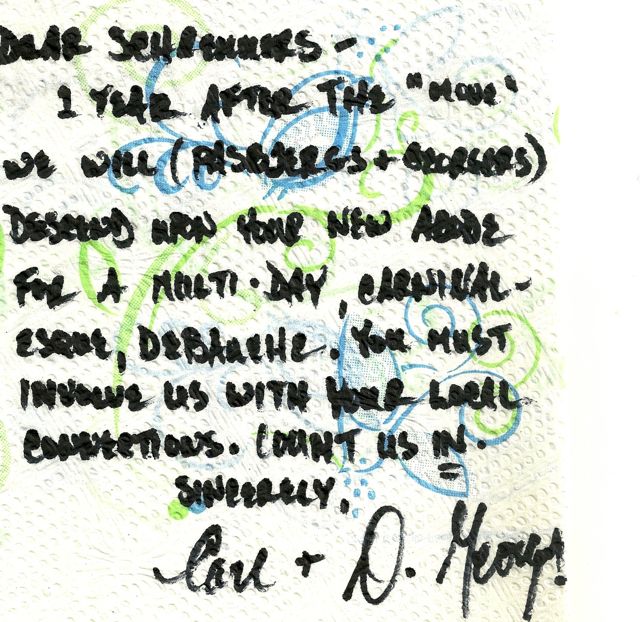 DEAR SCHRAMMERS -
1 YEAR AFTER THE "MOVE"
WE WILL ( + GEORGERS)
DESCEND UPON YOUR NEW ABODE
FOR A MULTI-DAY, CARNIVAL-
ESQUE, DEBAUCHE. YOU MUST
INVOLVE US WITH YOUR LOCAL
CONNECTIONS. COUNT US IN.
SINCERELY,
Carl + D. George!